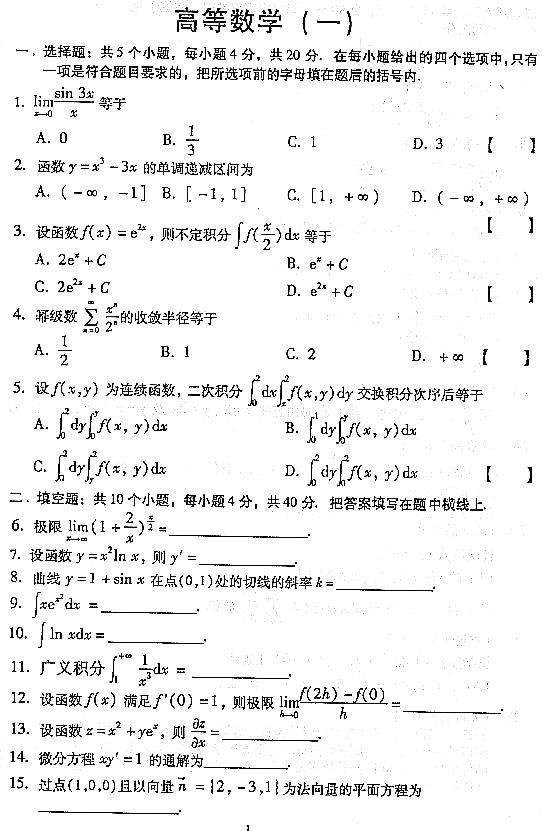 高等数学（一）
一．选择题：共5个小题，每小题4分，共20分．在每小题给出的四个选项中，只有
一项是符合题目要求的，把所选项前的字母填在题后的括号内．
1. lim_{x→0} sin 3x / x 等于
A. 0 B. 1/3 C. 1 D. 3 【 】
2. 函数 y = x³ - 3x 的单调递减区间为
A. (-∞, -1] B. [-1, 1] C. [1, +∞) D. (-∞, +∞)
【 】
3. 设函数 f(x) = e^{2x}, 则不定积分 ∫f(x/2)dx 等于
A. 2e^x + C B. e^x + C
C. 2e^{2x} + C D. e^{2x} + C 【 】
4. 幂级数 ∑_{n=0}^{∞} x^n/2^n 的收敛半径等于
A. 1/2 B. 1 C. 2 D. +∞ 【 】
5. 设 f(x,y) 为连续函数，二次积分 ∫_0^2 dx ∫_x^2 f(x,y)dy 交换积分次序后等于
A. ∫_0^2 dy ∫_0^y f(x, y)dx B. ∫_0^1 dy ∫_0^y f(x, y)dx
C. ∫_0^2 dy ∫_y^2 f(x, y)dx D. ∫_0^2 dy ∫_0^2 f(x, y)dx 【 】
二．填空题：共10个小题，每小题4分，共40分．把答案填写在题中横线上．
6. 极限 lim_{x→∞} (1 + 2/x)^{x/2} = ________.
7. 设函数 y = x² ln x, 则 y′ = ________.
8. 曲线 y = 1 + sin x 在点(0,1)处的切线的斜率 k = ________.
9. ∫xe^{x²}dx = ________.
10. ∫ln xdx = ________.
11. 广义积分 ∫_1^{+∞} 1/x³ dx = ________.
12. 设函数 f(x) 满足 f′(0) = 1, 则极限 lim_{h→0} f(2h) - f(0) / h = ________.
13. 设函数 z = x² + ye^x, 则 ∂z/∂x = ________.
14. 微分方程 xy′ = 1 的通解为________.
15. 过点(1,0,0)且以向量 n⃗ = {2, -3, 1}为法向量的平面方程为
________.
1